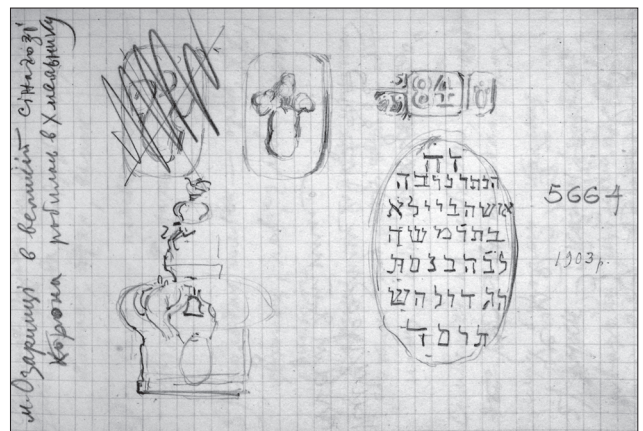 м. Озаринці в великій сінагозі
Корона робилась в Хмельнику
84
זה
הכתר נדבה
אישה ביילא
בת ר משה
לבהבנסת
הגדול הש
תרסד
5664
1903 р.